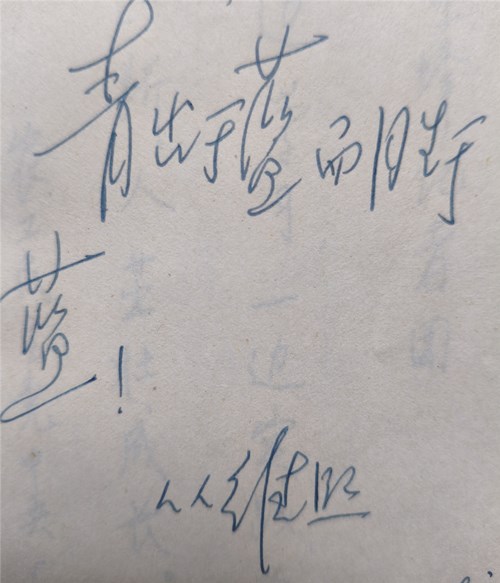 青出于蓝而胜于
蓝！
从维熙